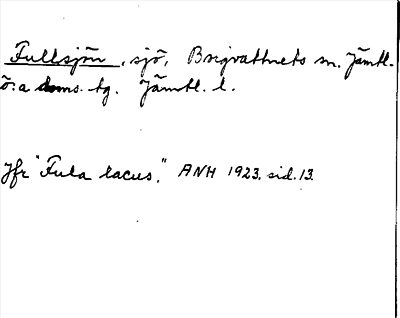 Fullsjön, sjö, Brigvattnets sn. Jämtl.
ö:a doms. tg. Jämtl. l.
Jfr "Fula lacus", ANH 1923. sid. 13.